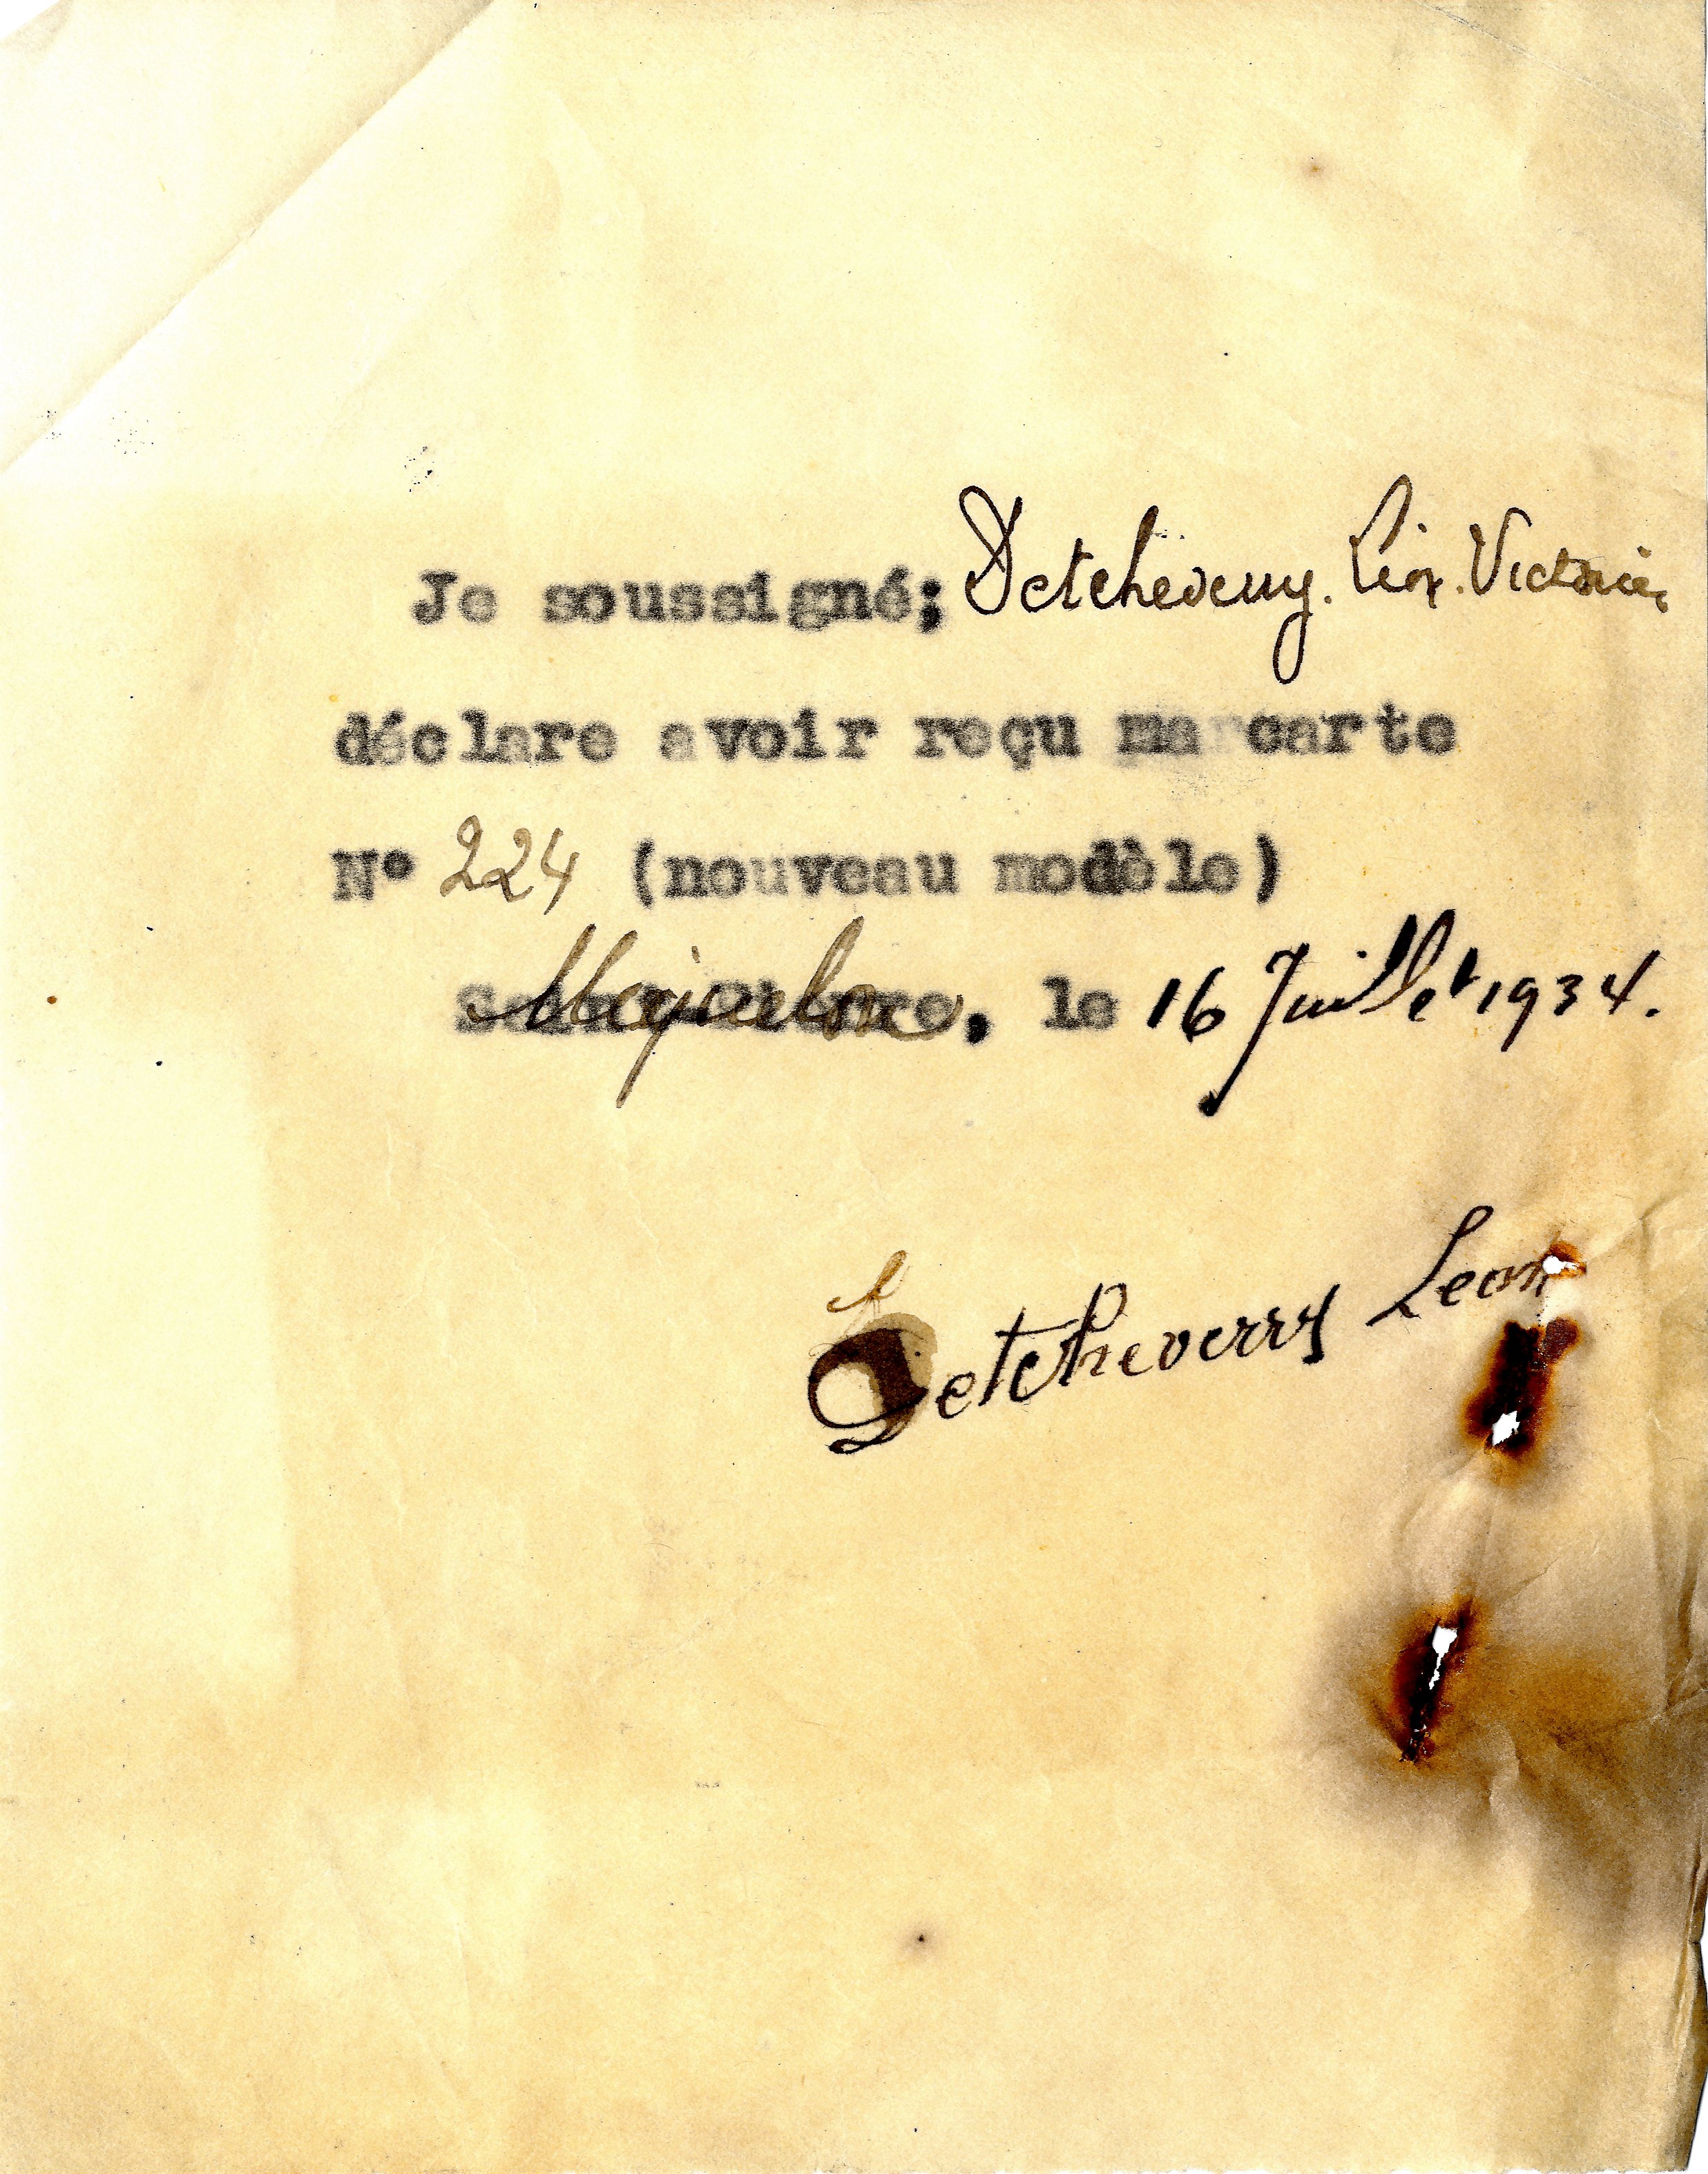 Je soussigné; Detcheverry. Léon. Victorien
déclare avoir reçu ma carte
N° 224 (nouveau modèle)
Miquelon, le 16 Juillet 1934.
Detcheverry Leon